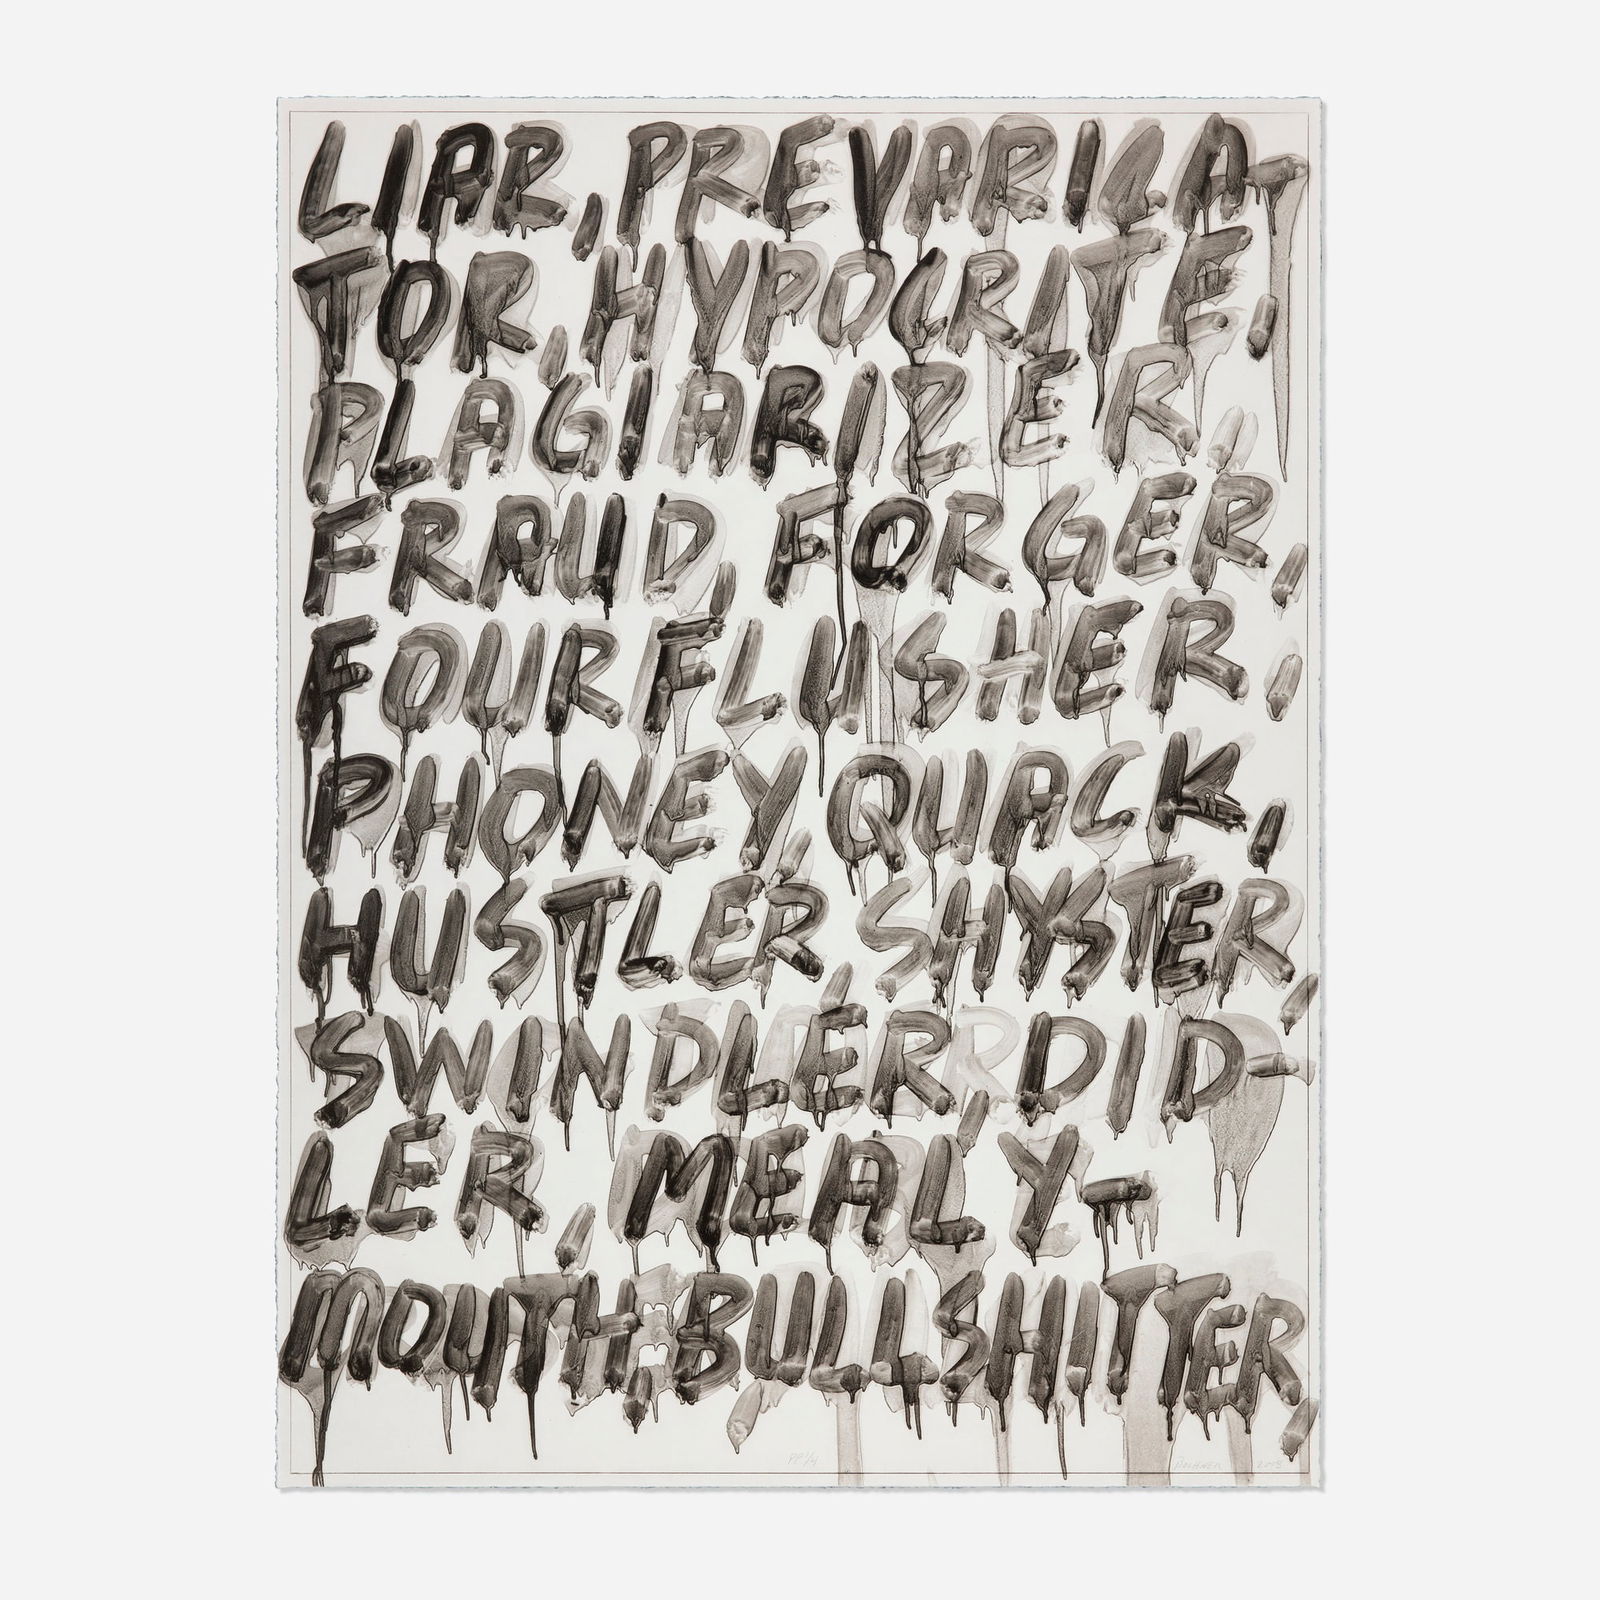 LIAR, PREVARICA-
TOR, HYPOCRITE,
PLAGIARIZER,
FRAUD, FORGER,
FOURFLUSHER,
PHONEY, QUACK,
HUSTLER, SHYSTER,
SWINDLER, DID-
LER, MEALY-
MOUTH, BULLSHITTER,
PP 1/4